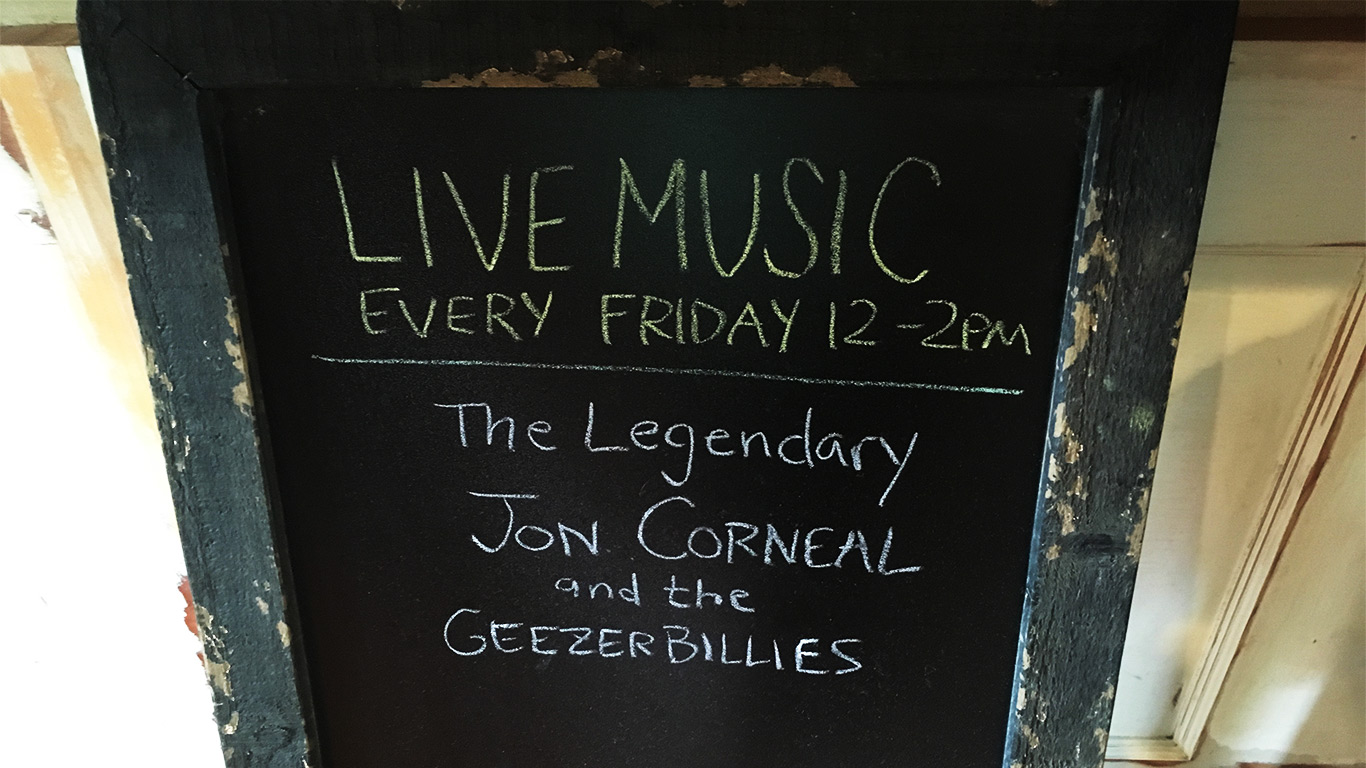 LIVE MUSIC
EVERY FRIDAY 12-2PM
The Legendary
JON CORNEAL
and the
GEEZERBILLIES